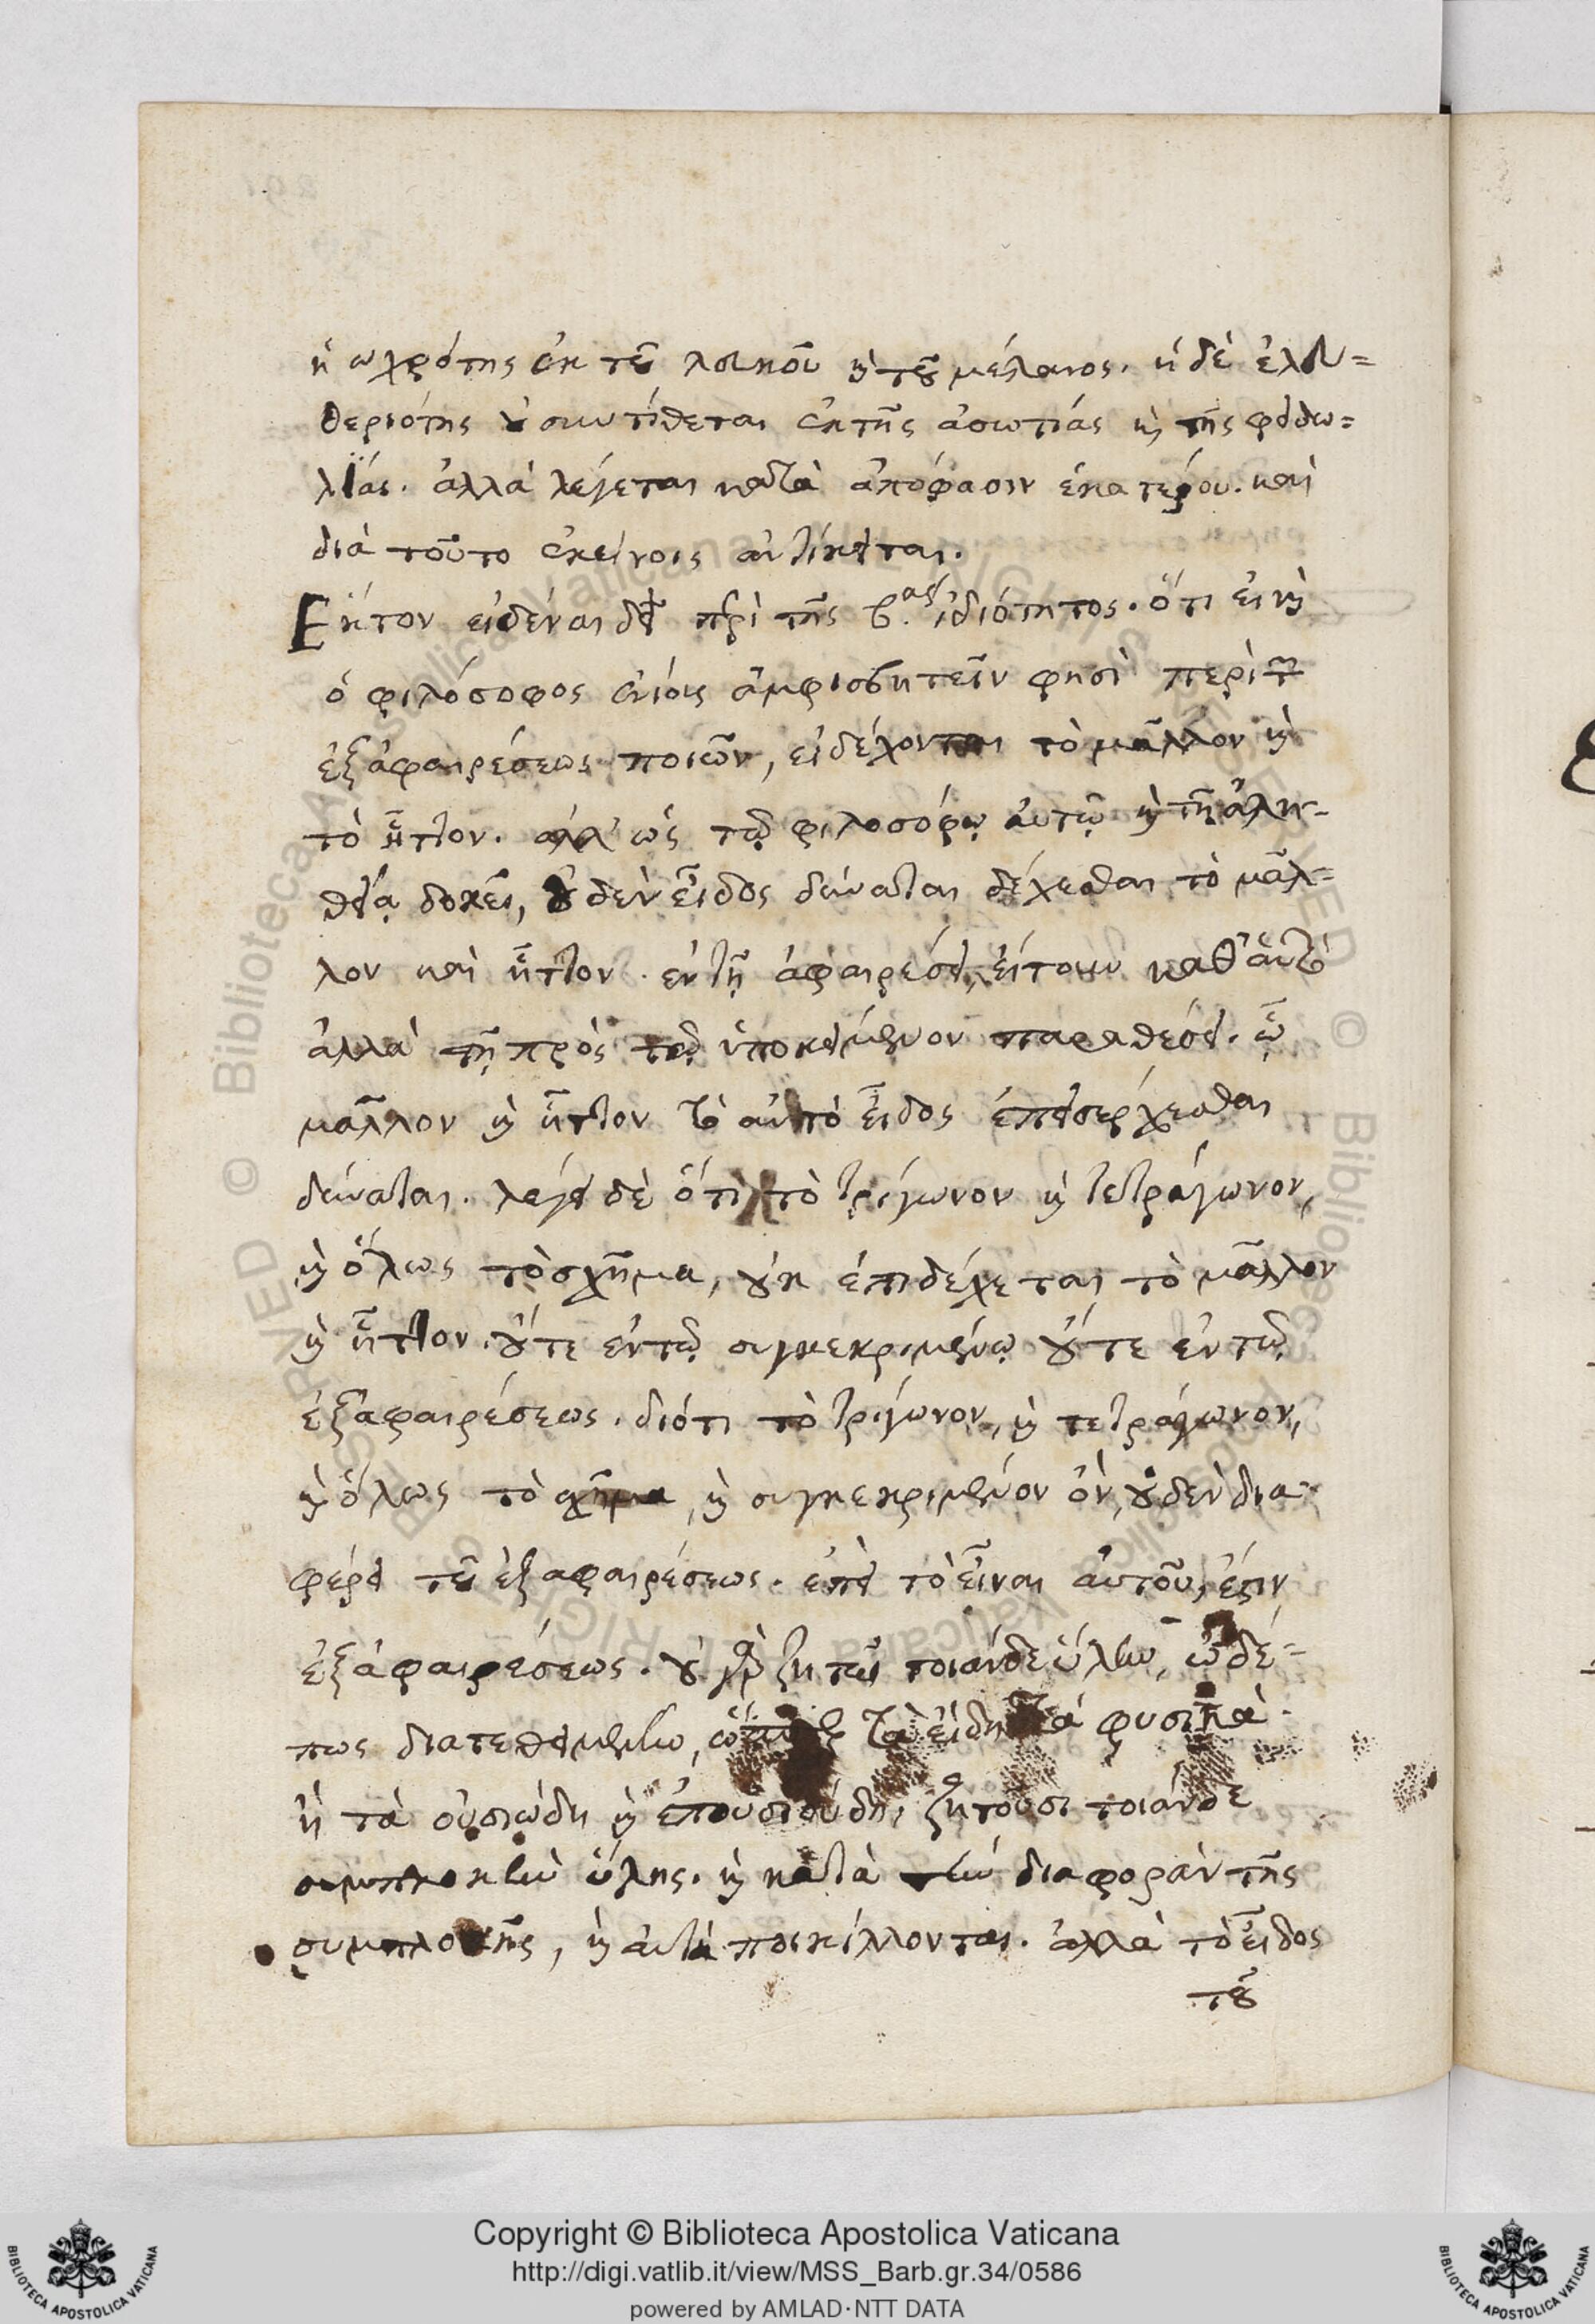 ἡ ωχρότης ἐκ τοῦ λευκοῦ καὶ τοῦ μέλανος. ἡ δὲ ἐλευ=
θεριότης οὐ συντίθεται ἐκ τῆς ἀσωτιάς καὶ τῆς φειδω=
λίας. ἀλλὰ λέγεται κατὰ ἀπόφασιν ἑκατέρου. καὶ
διὰ τοῦτο ἐκείνοις ἀντίκειται.
Εκτον εἰδέναι δεῖ περὶ τῆς β.ας ἰδιότητος. ὅτι εἰ καὶ
ὁ φιλόσοφος ἐνίους ἀμφισβητεῖν φησὶ περὶ τῶν
ἐξ ἀφαιρέσεως ποιῶν, εἰ δέχονται τὸ μᾶλλον καὶ
τὸ ἧττον. ἀλλ' ὡς τῷ φιλοσόφῳ αὐτῷ καὶ τῇ ἀλη-
θείᾳ δοκεῖ, οὐδὲν εἶδος δύναται δέχεσθαι τὸ μᾶλ=
λον καὶ ἧττον. ἐν τῇ ἀφαιρέσει, εἴτουν καθ' αὑτὸ
ἀλλὰ τῇ πρὸς τὸ ὑποκείμενον παραθέσει. ᾧ
μᾶλλον καὶ ἧττον τὸ αὐτὸ εἶδος ἐπεισέρχεσθαι
δύναται. λέγει δὲ ὅτι τὸ τρίγωνον καὶ τετράγωνον,
καὶ ὅλως τὸ σχῆμα, οὐκ ἐπιδέχεται τὸ μᾶλλον
καὶ ἧττον. οὔτε ἐν τῷ συγκεκριμένῳ οὔτε ἐν τῷ
ἐξ ἀφαιρέσεως. διότι τὸ τρίγωνον, καὶ τετράγωνον,
καὶ ὅλως τὸ σχῆμα, καὶ συγκεκριμένον ὂν, οὐδὲν δια-
φέρει τοῦ ἐξ αφαιρέσεως. ἐπεὶ τὸ εἶναι αὐτοῦ, ἐστὶν
ἐξ ἀφαιρέσεως. οὐ γὰρ ζητεῖ τοιάνδε ὕλην, ὡδέ=
πως διατεθειμένην, ὥσπερ τὰ εἴδη τὰ φυσικὰ.
ἢ τὰ οὐσιώδη καὶ ἐπουσιώδη, ζητοῦσι τοιάνδε
συμπλοκὴν ὕλης. καὶ κατὰ τὴν διαφορὰν τῆς
συμπλοκῆς, καὶ αὐτὰ ποικίλλονται. ἀλλὰ τὸ εἶδος
τοῦ
Copyright © Biblioteca Apostolica Vaticana
http://digi.vatlib.it/view/MSS_Barb.gr.34/0586
powered by AMLAD·NTT DATA